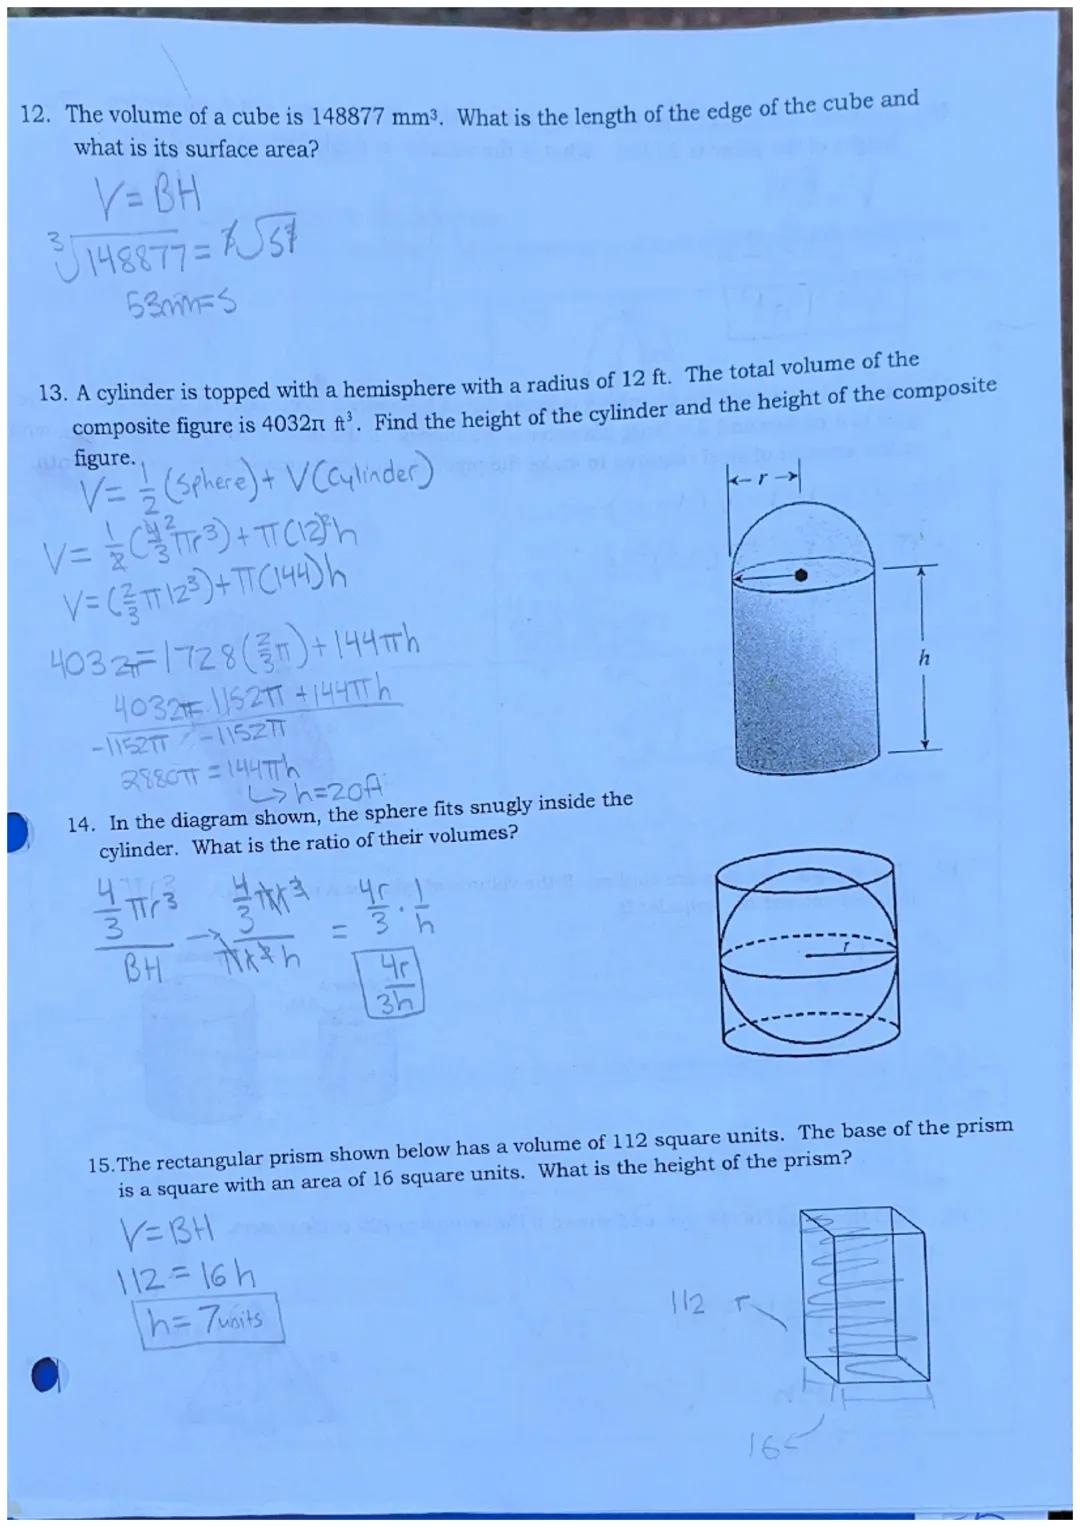 12. The volume of a cube is 148877 mm³. What is the length of the edge of the cube and
what is its surface area?
V=BH
∛148877 = ∛S³
53mm=S
13. A cylinder is topped with a hemisphere with a radius of 12 ft. The total volume of the
composite figure is 4032π ft³. Find the height of the cylinder and the height of the composite
figure.
V= 1/2 (Sphere)+ V(Cylinder)
V= 1/2 (4/3 πr³)+π(12)²h
V=(2/3 π12³)+π(144)h
4032π=1728(2/3 π)+144πh
4032π=1152π+144πh
-1152π -1152π
2880π=144πh
↳h=20ft
r
h
14. In the diagram shown, the sphere fits snugly inside the
cylinder. What is the ratio of their volumes?
4/3 πr³ / BH → 4/3 πr³ / πr²h = 4r/3 · 1/h
4r/3h
r
15. The rectangular prism shown below has a volume of 112 square units. The base of the prism
is a square with an area of 16 square units. What is the height of the prism?
V=BH
112=16h
h=7units
112
16